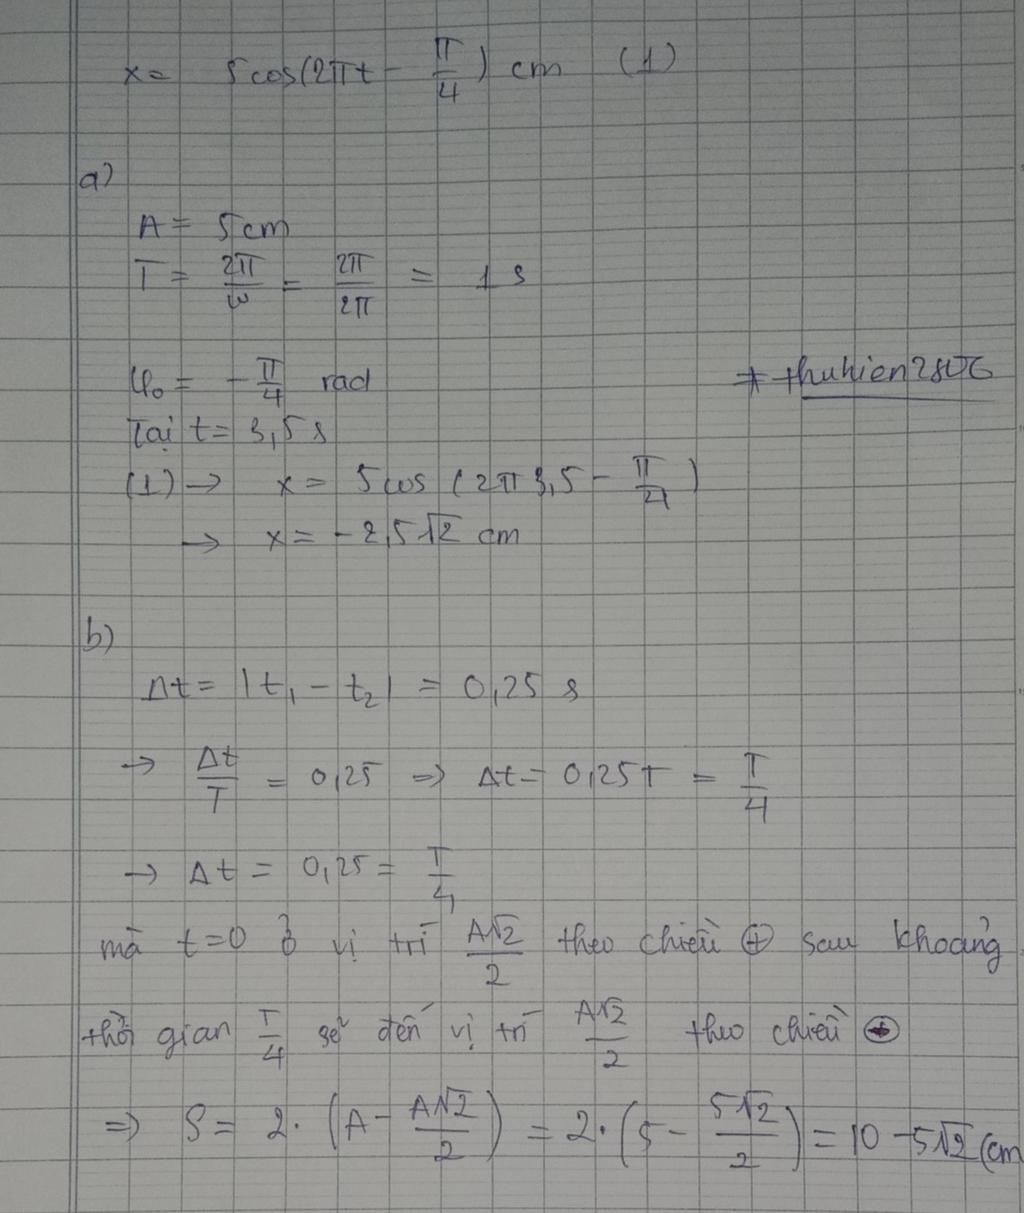 x = 5cos(2πt - π/4) cm (1)
a)
A = 5cm
T = 2π/ω = 2π/2π = 1 s
φ₀ = -π/4 rad
* thuhien2806
Tại t = 3,5 s
(1) → x = 5cos (2π 3,5 - π/4)
→ x = -2,5√2 cm
b)
Δt = |t₁ - t₂| = 0,25 s
→ Δt/T = 0,25 => Δt = 0,25T = T/4
→ Δt = 0,25 = T/4
mà t=0 ở vị trí A√2/2 theo chiều ⊕ sau khoảng
thời gian T/4 sẽ đến vị trí A√2/2 theo chiều ⊕
=> S = 2. (A - A√2/2) = 2.(5 - 5√2/2) = 10 - 5√2 (cm